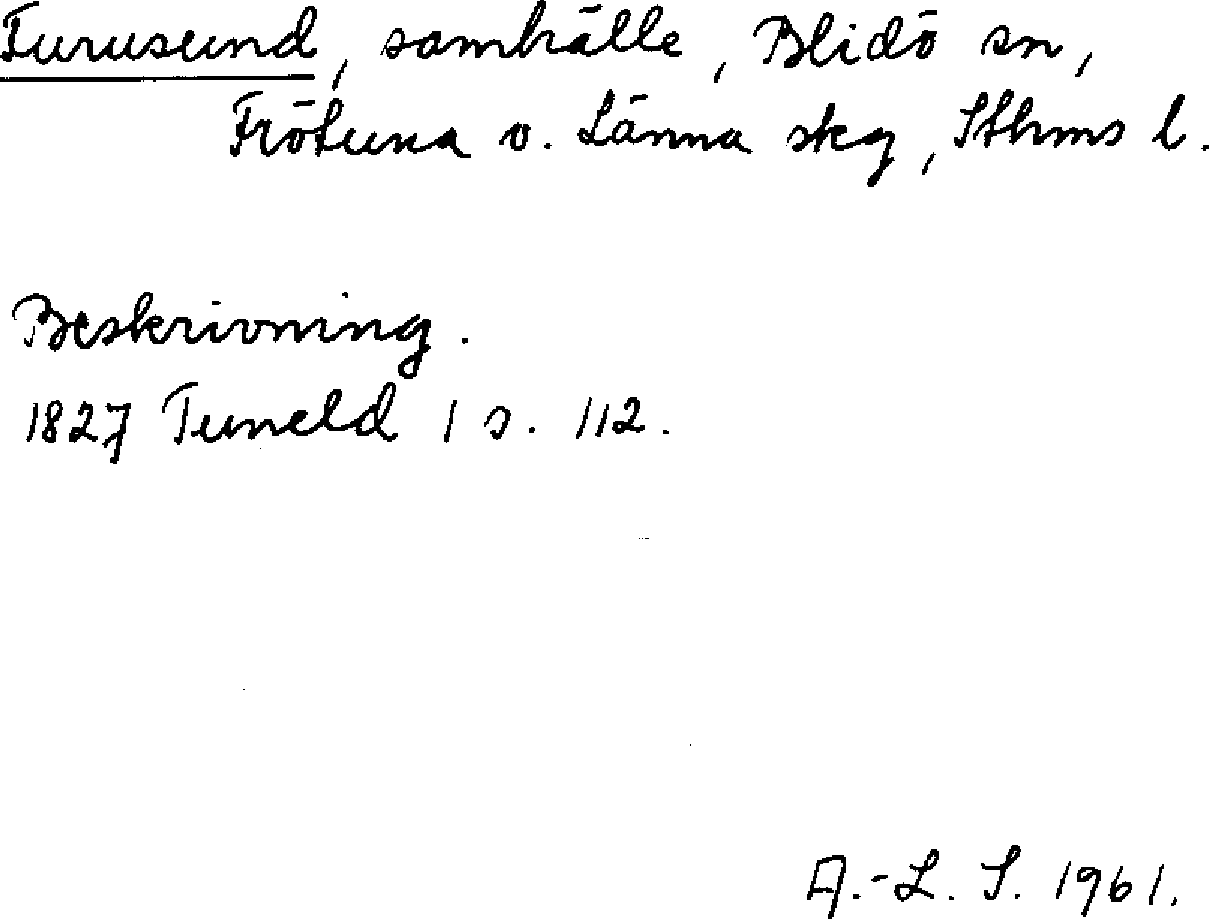 Furusund, samhälle, Blidö sn,
Frötuna o. Länna skg, Sthms l.
Beskrivning.
1827 Tuneld 1 s. 112.
A.-L. S. 1961.